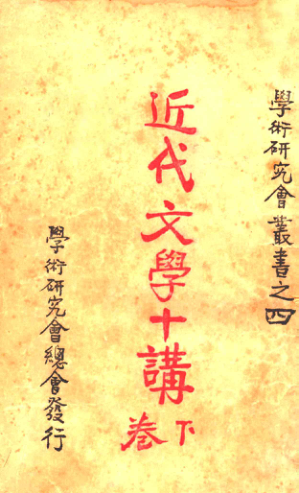 學術研究會叢書之四
近代文學十講
下卷
學術研究會總會發行